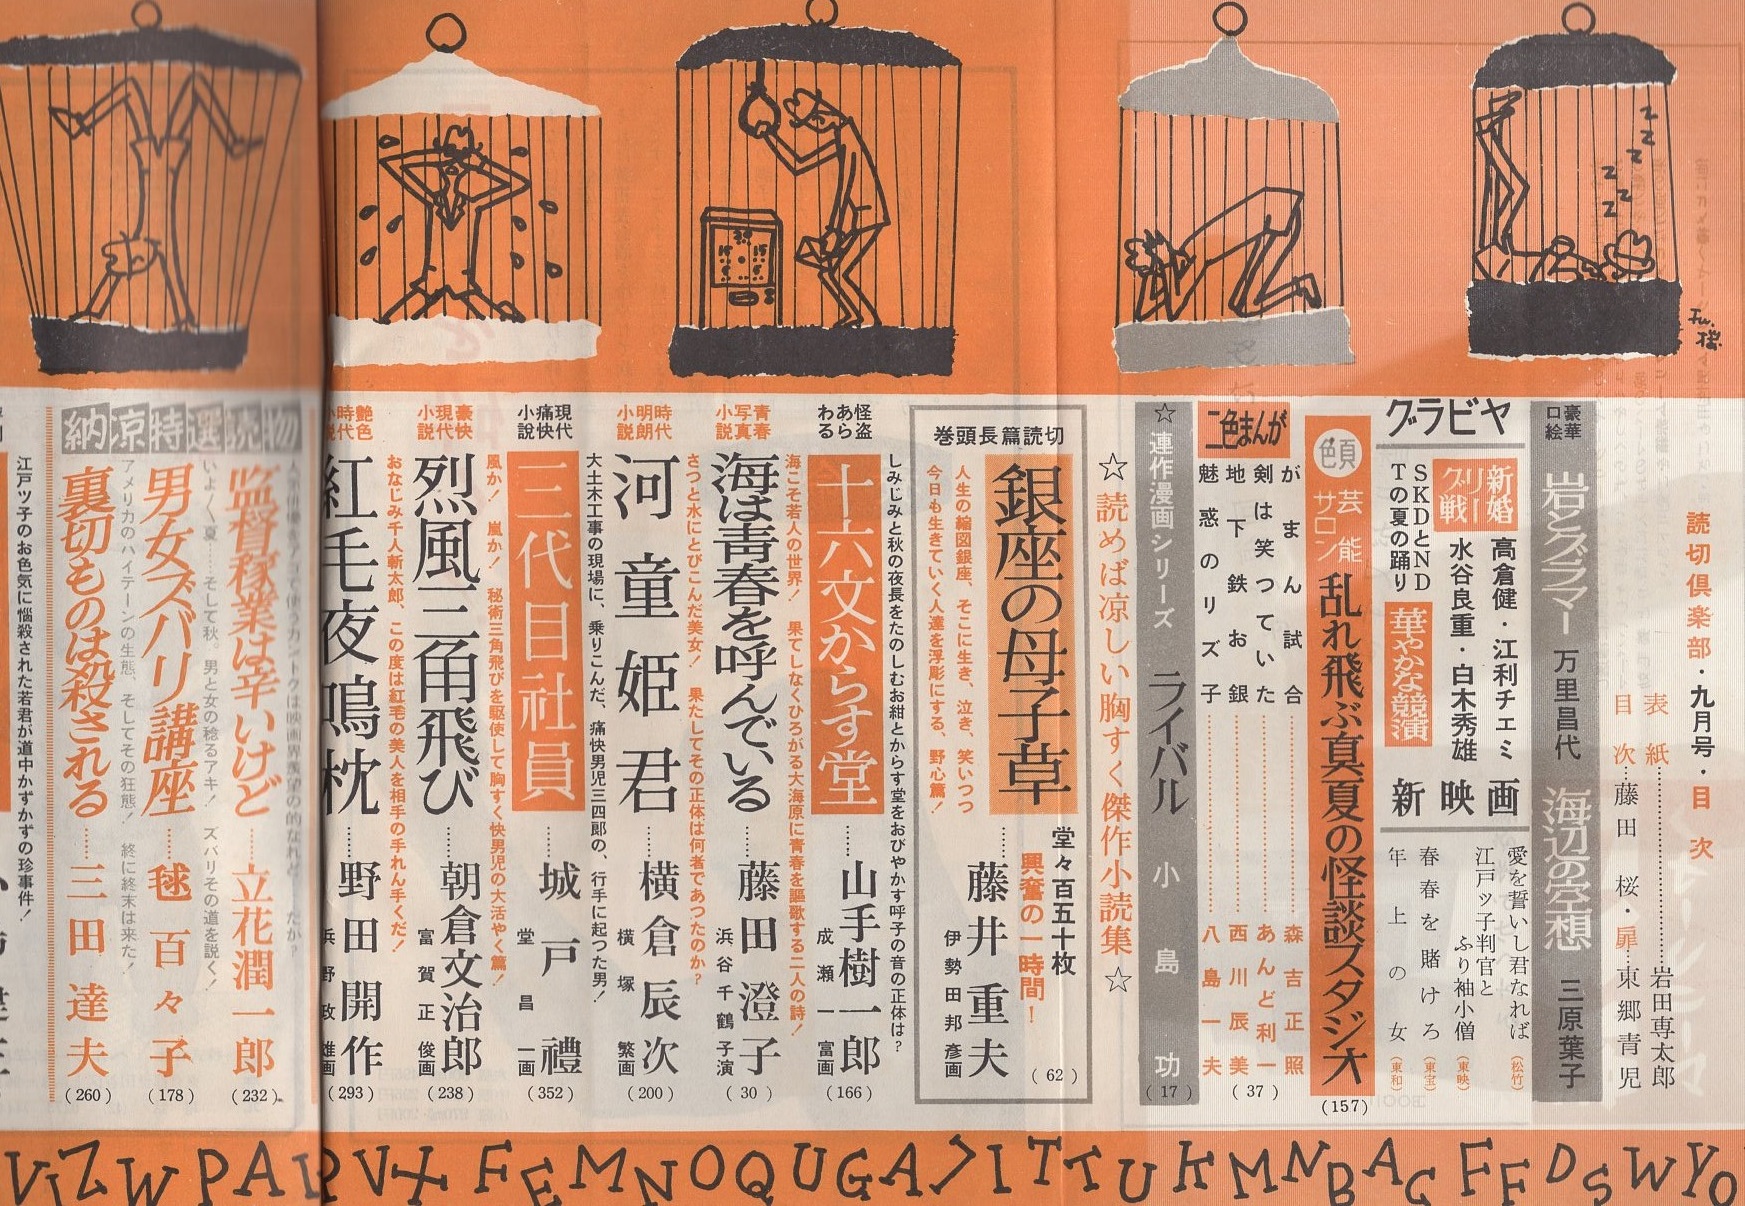 読切倶楽部・九月号・目次
表紙……岩田専太郎
目次…藤田 桜・扉…東郷青児
豪華口絵
岩とグラマー 万里昌代
海辺の空想 三原葉子
グラビヤ
新婚グリー戦
高倉健・江利チエミ
水谷良重・白木秀雄
SKDとNDTの夏の踊り
華やかな競演
新映画
愛を誓いし君なれば (松竹)
江戸ッ子判官とふり袖小僧 (東映)
春春を賭けろ (東宝)
年上の女 (東和)
芸能サロン
乱れ飛ぶ真夏の怪談スタジオ (157)
二色まんが
がまん試合……森吉正照
剣は笑つていた……あんど利一
地下鉄お銀……西川辰美
魅惑のリズ子……八島一夫
(37)
☆連作漫画シリーズ ライバル 小島功 (17)
☆読めば涼しい胸すく傑作小読集☆
巻頭長篇読切
銀座の母子草……藤井重夫
伊勢田邦彦画
(62)
堂々百五十枚
興奮の一時間!
人生の縮図銀座、そこに生き、泣き、笑いつつ
今日も生きていく人達を浮彫にする、野心篇!
しみじみと秋の夜長をたのしむお紺とからす堂をおびやかす呼子の音の正体は?
怪盗あらわる
十六文からす堂……山手樹一郎
成瀬一富画
(166)
海こそ若人の世界! 果てしなくひろがる大海原に青春を謳歌する二人の詩!
青春写真小説
海は青春を呼んでいる……藤田澄子
浜谷千鶴子演
(30)
さつと水にとびこんだ美女! 果たしてその正体は何者であつたのか?
時代明朗小説
河童姫君……横倉辰次
横塚繁画
(200)
大土木工事の現場に、乗りこんだ、痛快男児三四郎の、行手に起つた男!
現代痛快小說
三代目社員……城戸禮
堂昌一画
(352)
風か! 嵐か! 秘術三角飛びを駆使して胸すく快男児の大活やく篇!
豪快現代小説
烈風三角飛び……朝倉文治郎
富賀正俊画
(238)
おなじみ千人斬太郎、この度は紅毛の美人を相手の手れん手くだ!
艶色時代小説
紅毛夜鳴枕……野田開作
(293)
納凉特選読物
監督稼業は辛いけど……立花潤一郎
(232)
いよく、夏……そして秋。男と女の稔るアキ! ズバリその道を説く!
男女ズバリ講座……毬百々子
(178)
アメリカのハイテーンの生態、そしてその狂態! 終に終末は来た!
裏切ものは殺される……三田達夫
(260)
江戸ツ子のお色気に悩殺された若君が道中かずかずの珍事件!